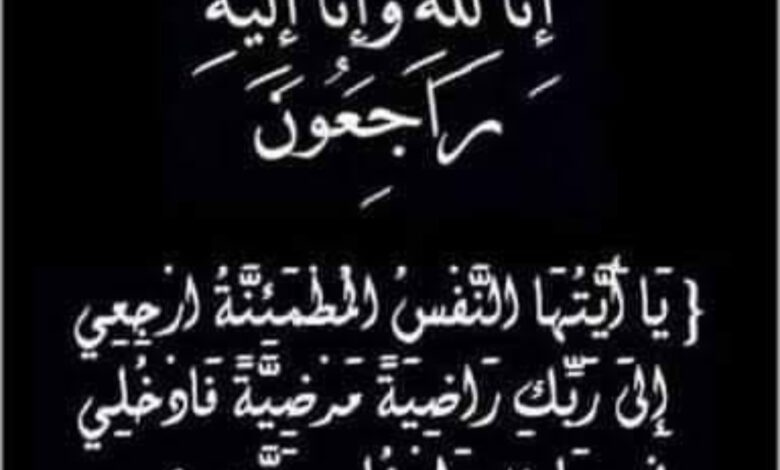 إِنَّا لِلَّهِ وَإِنَّا إِلَيْهِ
رَاجِعُونَ
{ يَا أَيَّتُهَا النَّفْسُ الْمُطْمَئِنَّةُ ارْجِعِي
إِلَى رَبِّكِ رَاضِيَةً مَرْضِيَّةً فَادْخُلِي